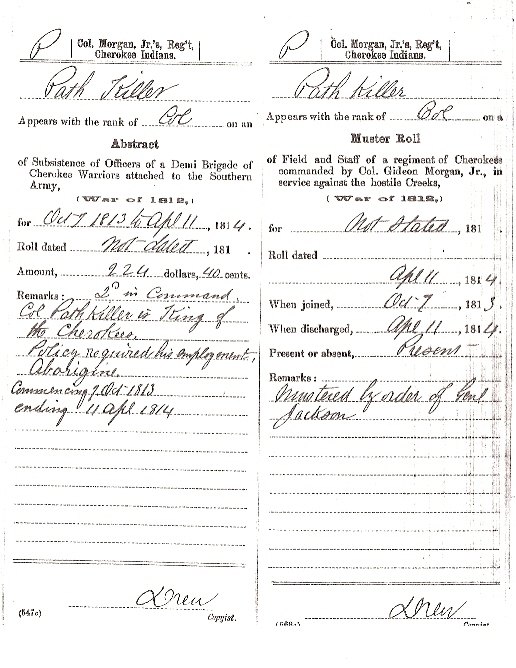 P
Col. Morgan, Jr.'s, Reg't,
Cherokee Indians.
Path Killer
Appears with the rank of Col on an
Abstract
of Subsistence of Officers of a Demi Brigade of
Cherokee Warriors attached to the Southern
Army,
(War of 1812,)
for Oct 7 1813 to Apl 11, 1814.
Roll dated Not dated, 181 .
Amount, 224 dollars, 40 cents.
Remarks: 2d in Command
Col Path Killer is King of
the Cherokees.
Policy required his employment,
Aborigine.
Commencing 7 Oct 1813
ending 11 Apl 1814
Drew
(647c) Copyist.
P
Col. Morgan, Jr.'s, Reg't,
Cherokee Indians.
Path Killer
Appears with the rank of Col on a
Muster Roll
of Field and Staff of a regiment of Cherokees
commanded by Col. Gideon Morgan, Jr., in
service against the hostile Creeks,
(War of 1812,)
for Not Stated, 181 .
Roll dated
Apl 11, 1814
When joined, Oct 7, 1813.
When discharged, Apl 11, 1814.
Present or absent, Present
Remarks:
Mustered by order of Genl
Jackson
Drew
Copyist